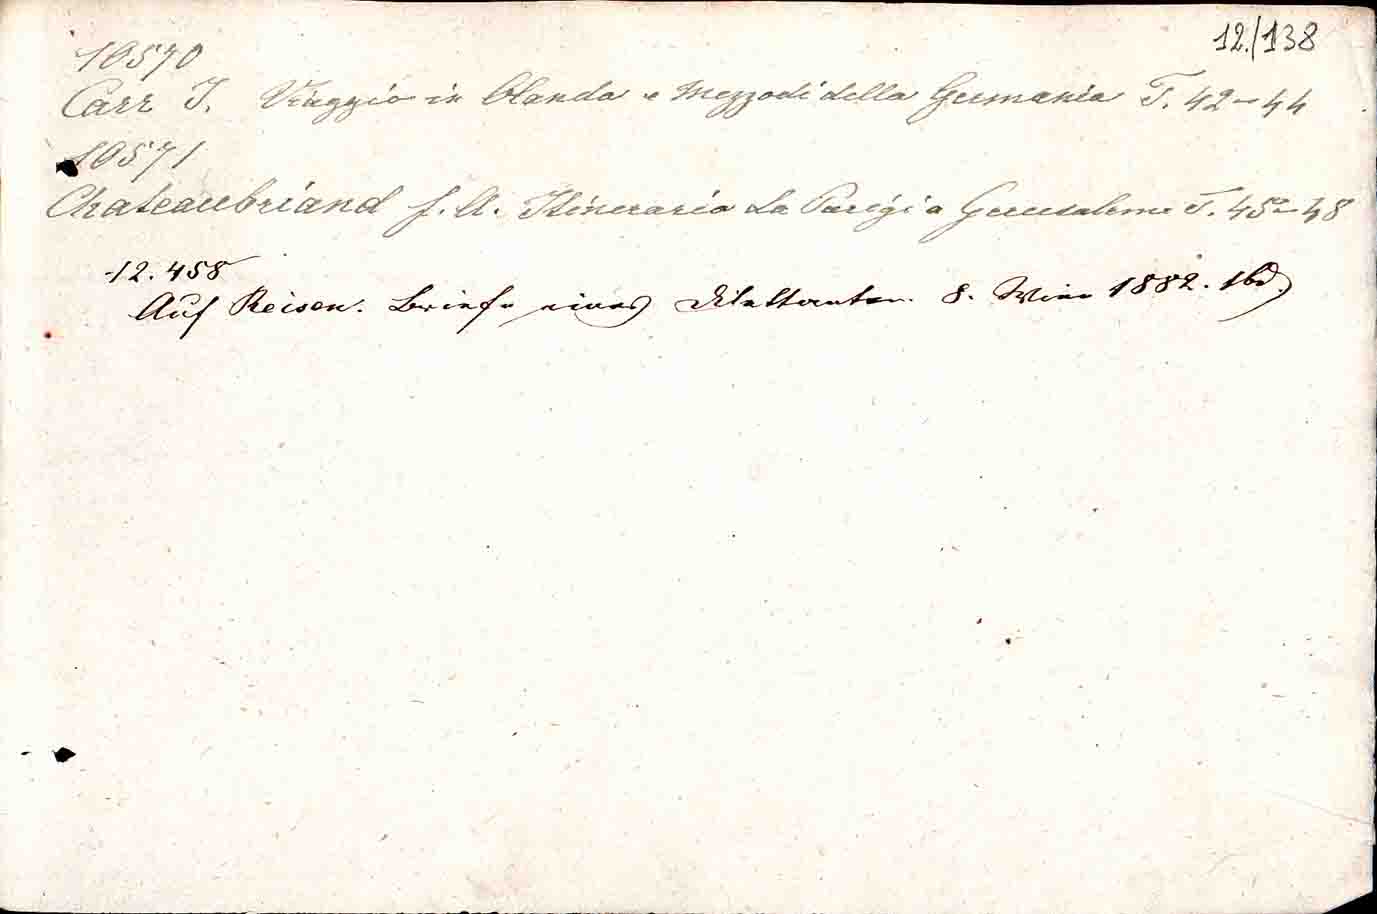 12./138
10570
Carr J. Viaggio in Olanda e Mezzodi della Germania T. 42-44
10571
Chateaubriand f. A. Itinerario da Parigi a Gerusaleme T. 45-48
12.458
Auf Reisen. Briefe eines Dilettanten. 8. Wien 1882. 1 bd.